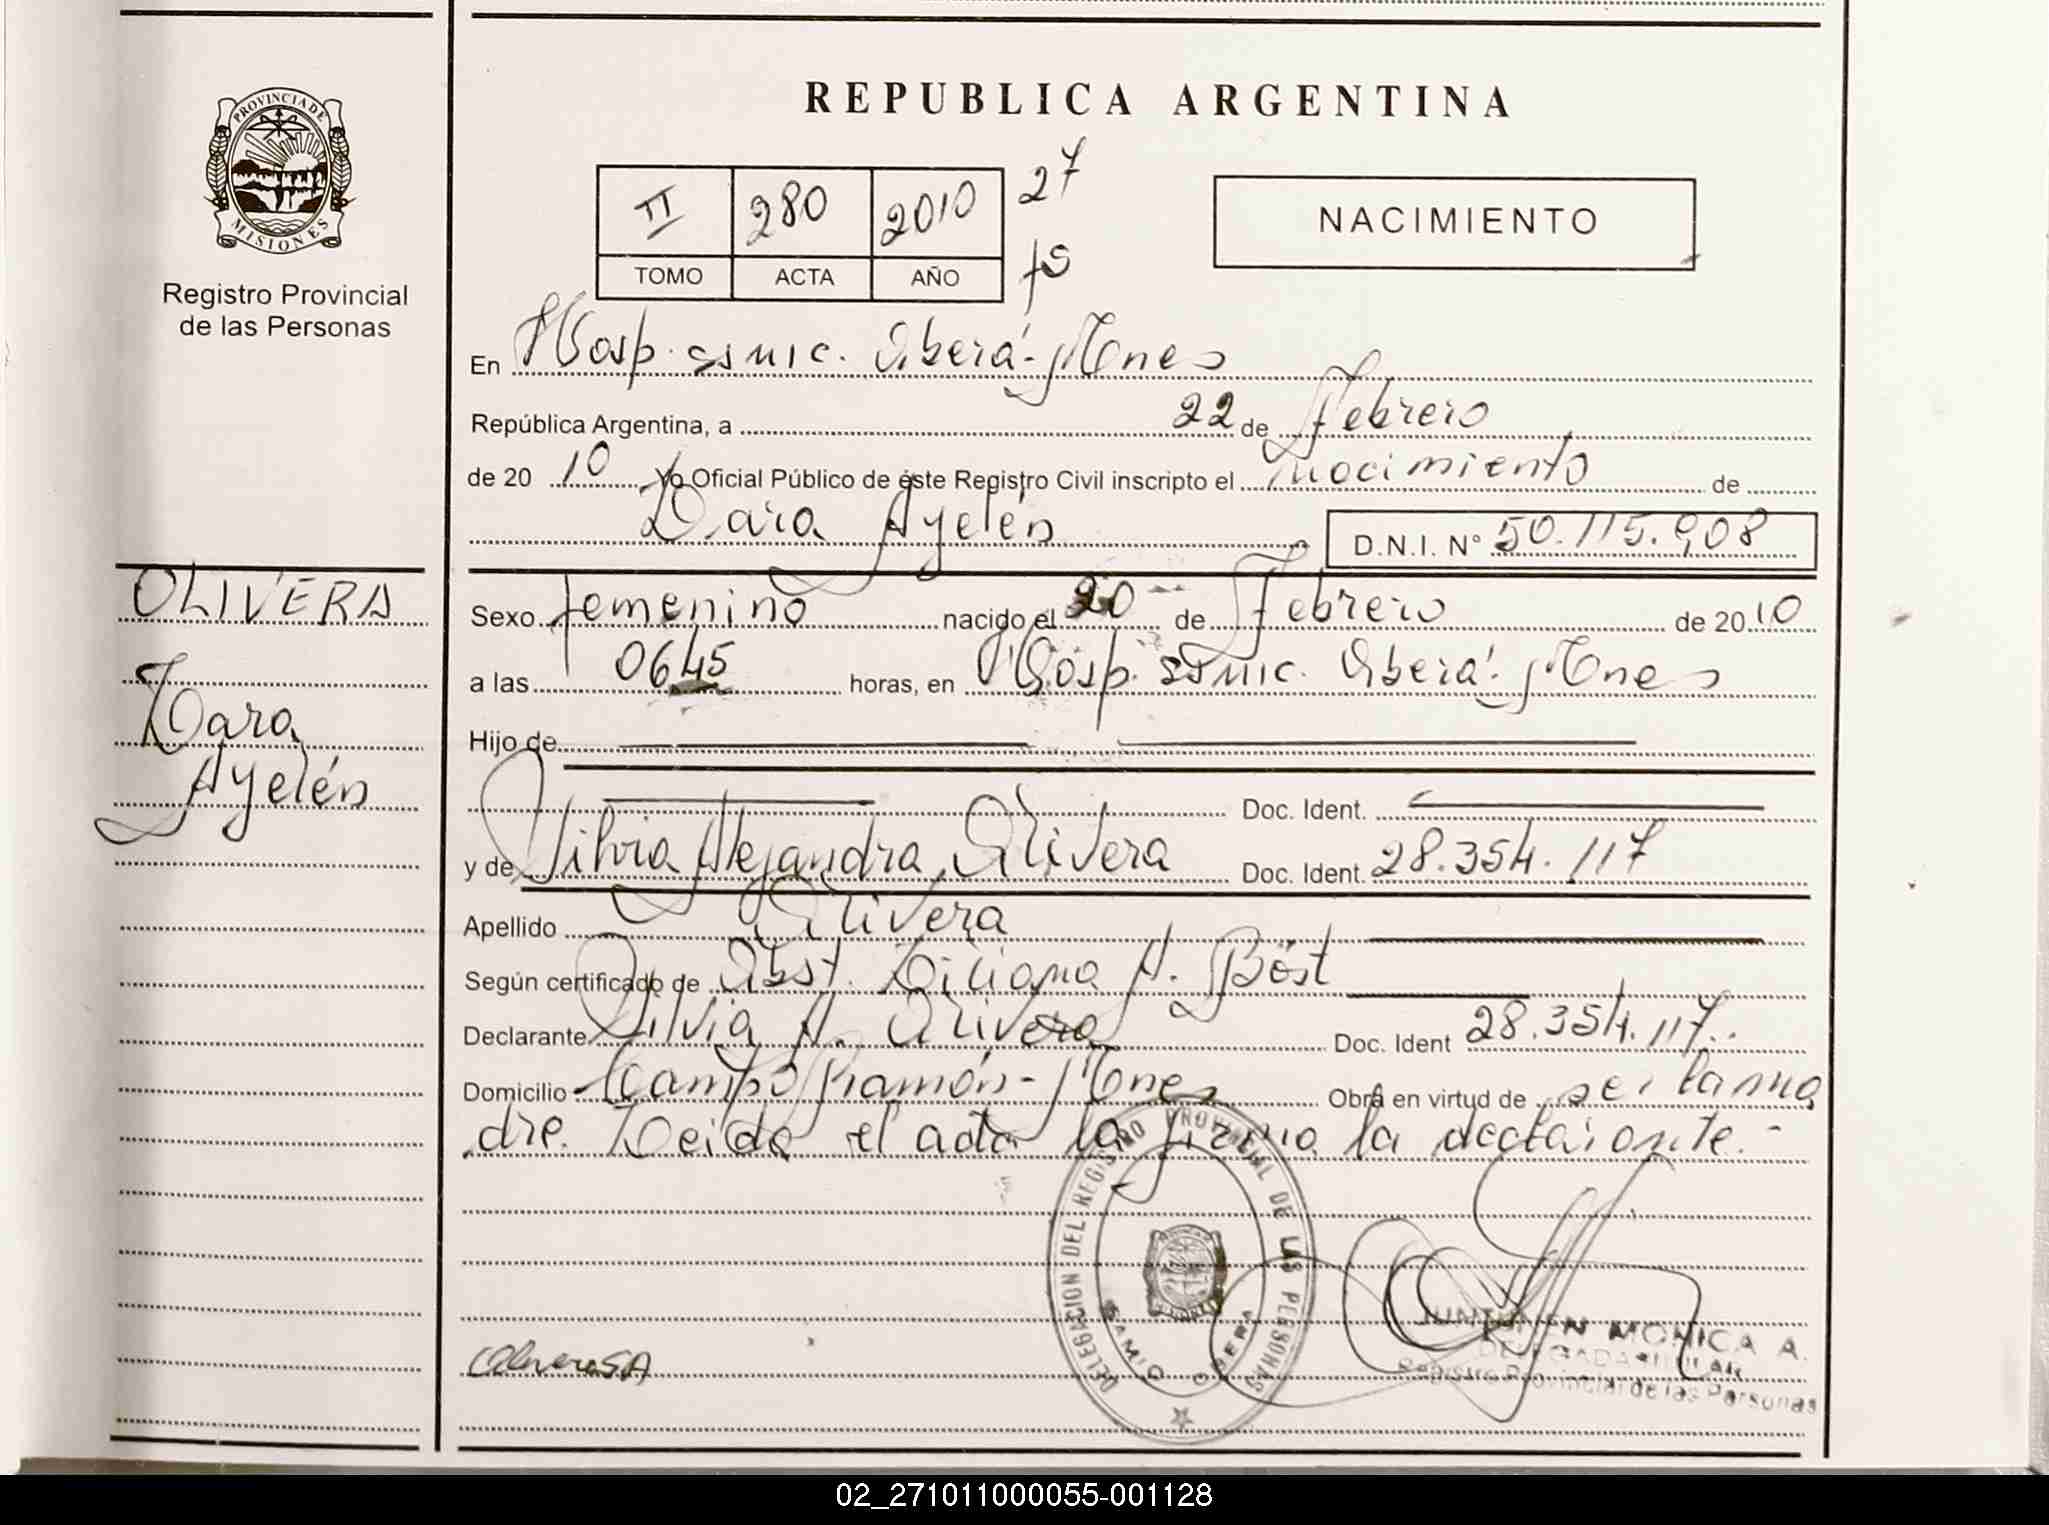 REPUBLICA ARGENTINA
PROVINCIA DE MISIONES
Registro Provincial
de las Personas
II 280 2010 27
TOMO ACTA AÑO fs
NACIMIENTO
En Hosp. ssmic. Oberá-Mnes
República Argentina, a 22 de Febrero
de 20 10 Yo Oficial Público de éste Registro Civil inscripto el nacimiento de
Lara Ayelén D.N.I. N° 50.115.908
OLIVERA
Lara
Ayelén
Sexo femenino nacido el 20 de Febrero de 20 10
a las 0645 horas, en Hosp. ssmic. Oberá. Mnes
Hijo de
Doc. Ident.
y de Silvia Alejandra Olivera Doc. Ident. 28.354.117
Apellido Olivera
Según certificado de Obst. Liliana A. Böst
Declarante Silvia A. Olivera Doc. Ident 28.354.117.
Domicilio Campo Ramón-Mnes Obra en virtud de ser la ma
dre. Leida el acta la firma la declarante.-
DELEGACION DEL REGISTRO PROVINCIAL DE LAS PERSONAS
OBERA
OliveraSA
MONICA A.
Registro Provincial de las Personas
02_271011000055-001128